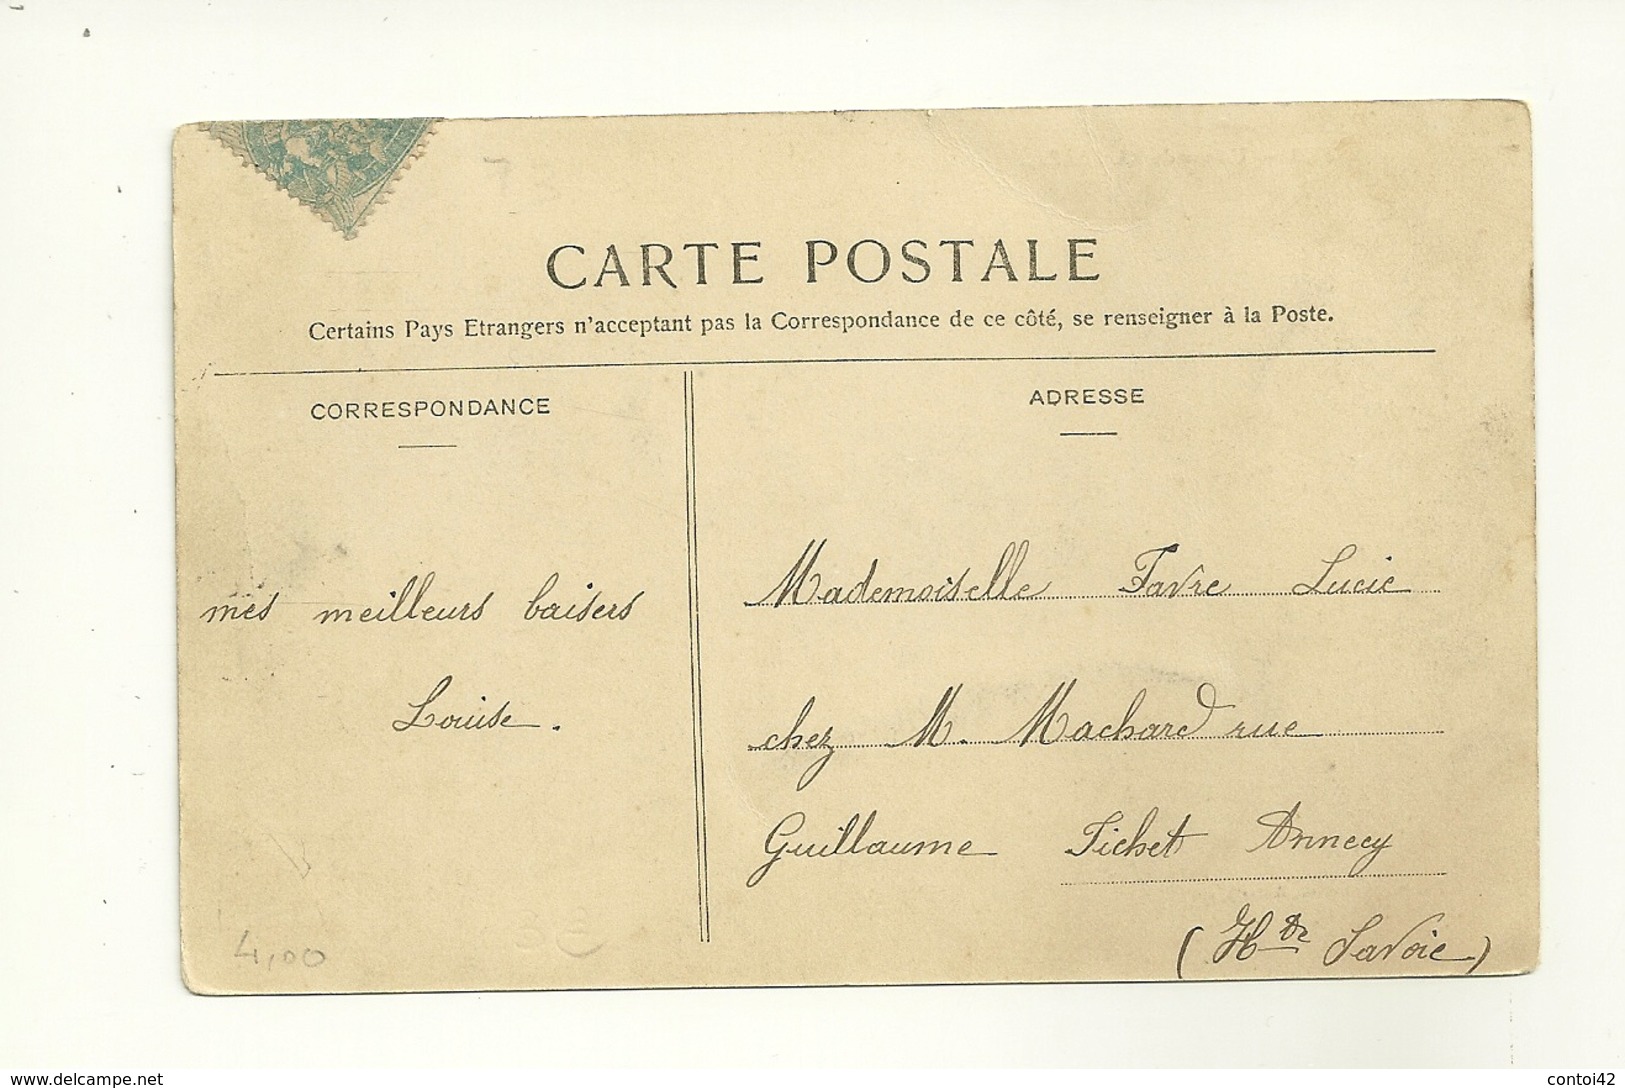 CARTE POSTALE
Certains Pays Etrangers n'acceptant pas la Correspondance de ce côté, se renseigner à la Poste.
CORRESPONDANCE
ADRESSE
mes meilleurs baisers
Louise.
Mademoiselle Favre Lucie
chez M. Machard rue
Guillaume Fichet Annecy
(Hte Savoie)
4,00
www.delcampe.net
contoi42